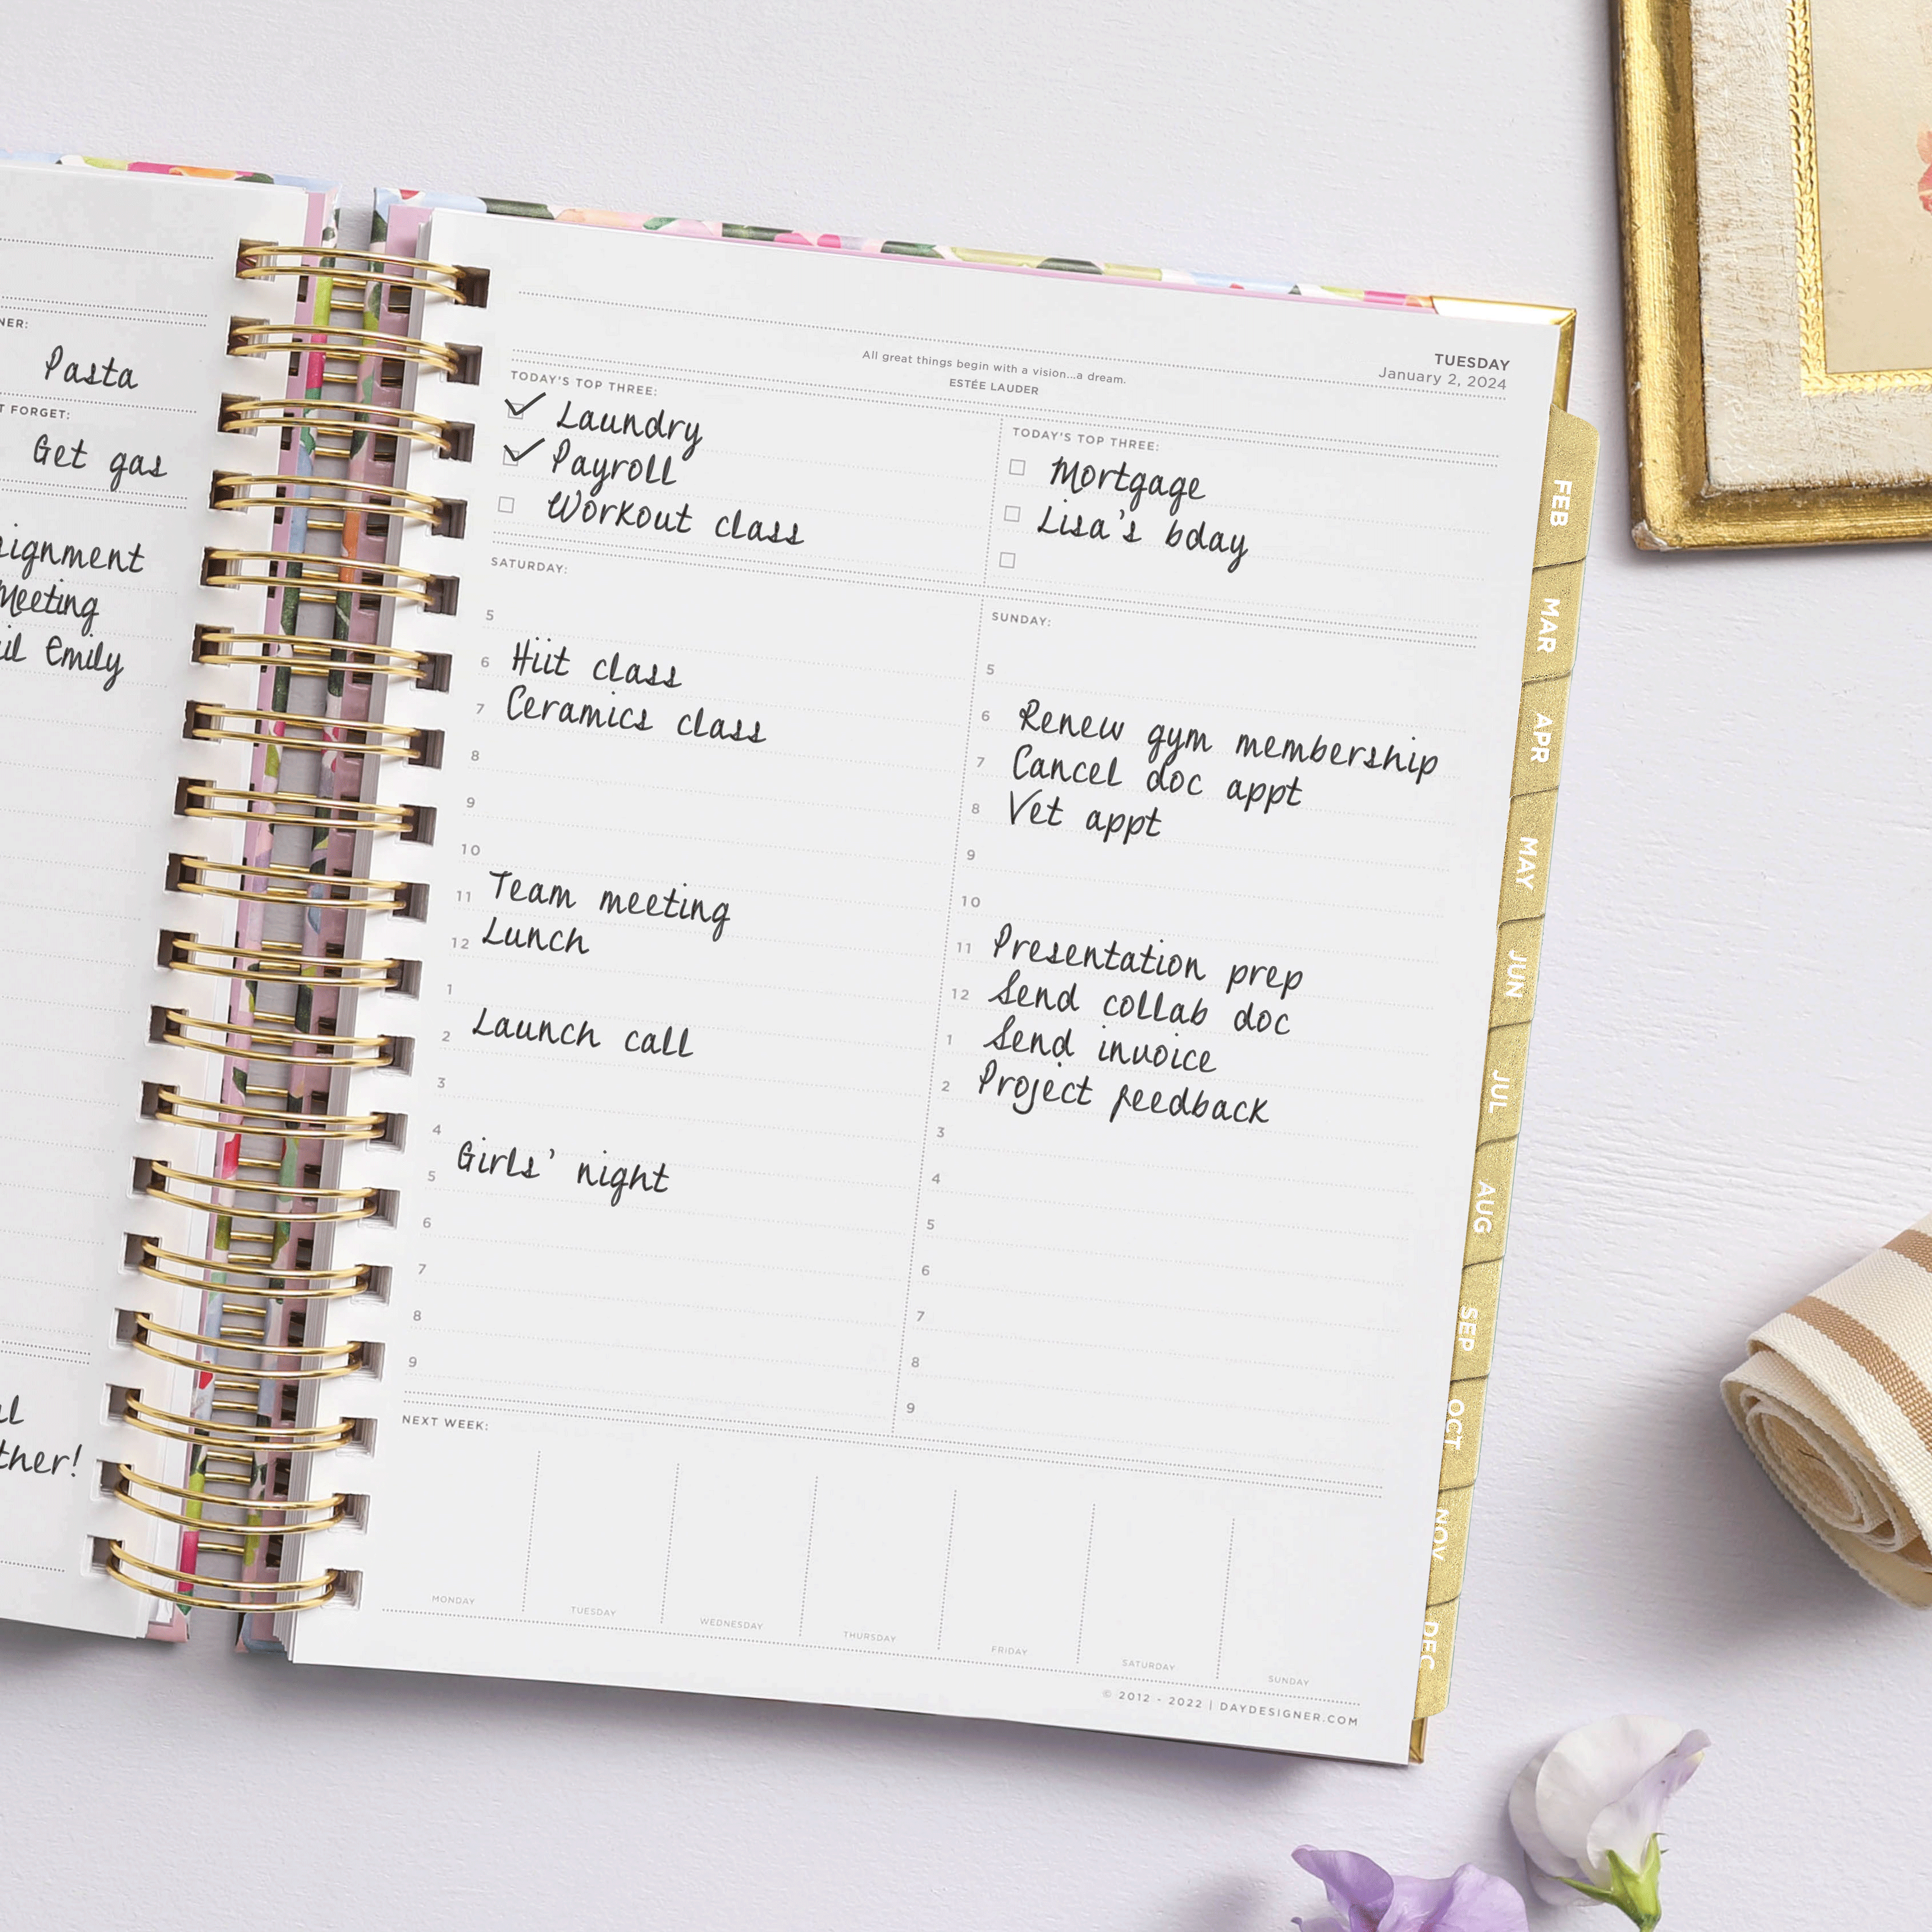 NER:
Pasta
T FORGET:
Get gas
ignment
Meeting
il Emily
ther!
All great things begin with a vision...a dream.
ESTÉE LAUDER
TUESDAY
January 2, 2024
TODAY'S TOP THREE:
Laundry
Payroll
Workout class
TODAY'S TOP THREE:
Mortgage
Lisa's bday
SATURDAY:
5
6 Hiit class
7 Ceramics class
8
9
10
11 Team meeting
12 Lunch
1
2 Launch call
3
4
5 Girls' night
6
7
8
9
SUNDAY:
5
6 Renew gym membership
7 Cancel doc appt
8 Vet appt
9
10
11 Presentation prep
12 Send collab doc
1 Send invoice
2 Project feedback
3
4
5
6
7
8
9
NEXT WEEK:
MONDAY
TUESDAY
WEDNESDAY
THURSDAY
FRIDAY
SATURDAY
SUNDAY
© 2012 - 2022 | DAYDESIGNER.COM
FEB
MAR
APR
MAY
JUN
JUL
AUG
SEP
OCT
NOV
DEC